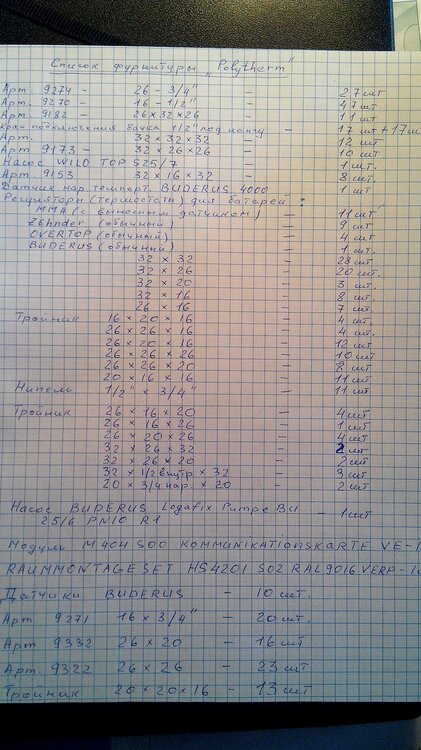 Список фурнитуры "Polytherm"
Арт. 9274 - 26 - 3/4" - 27 шт
Арт. 9270 - 16 - 1/2" - 47 шт
Арт. 9182 - 26 x 32 x 26 - 11 шт
Кран подключения бачка 1/2" под цангу - 17 шт + 17 ш
Арт. 32 x 32 x 32 - 12 шт
Арт. 9173 - 32 x 26 x 26 - 10 шт
Насос WILO TOP S 25/7 - 1 шт.
Арт. 9153 32 x 16 x 32 - 8 шт.
Датчик нар. темперт. BUDERUS 4000 - 1 шт
Регуляторы (термостаты) для батарей :
MMA (с выносным датчиком) - 11 шт
Zehnder (обычный) - 9 шт
OVERTOP (обычный) - 4 шт
BUDERUS (обычный) - 1 шт.
32 x 32 - 28 шт
32 x 26 - 20 шт.
32 x 20 - 3 шт.
32 x 16 - 8 шт.
26 x 16 - 7 шт
Тройник 16 x 20 x 16 - 4 шт.
26 x 26 x 16 - 4 шт.
26 x 20 x 16 - 12 шт
26 x 26 x 26 - 10 шт
26 x 26 x 20 - 8 шт
20 x 16 x 16 - 11 шт
Нипель 1/2" x 3/4" - 11 шт
Тройник 26 x 16 x 20 - 4 шт
26 x 16 x 26 - 1 шт
26 x 20 x 26 - 4 шт
32 x 26 x 32 - 2 шт
32 x 26 x 20 - 2 шт
32 x 1/2 внутр x 32 - 3 шт
20 x 3/4 нар. x 20 - 2 шт
Насос BUDERUS Logafix Pumpe BU
25/6 PN10 R1 - 1 шт
Модуль M404 SOO KOMMUNIKATIONSKARTE VE - 1
RAUMMONTAGESET HS4201 SO2 RAL9016 VERP - 1
Датчики BUDERUS - 10 шт.
Арт 9271 16 x 3/4" - 20 шт.
Арт 9332 26 x 20 - 16 шт
Арт. 9322 26 x 26 - 23 шт
Тройник 20 x 20 x 16 - 13 шт